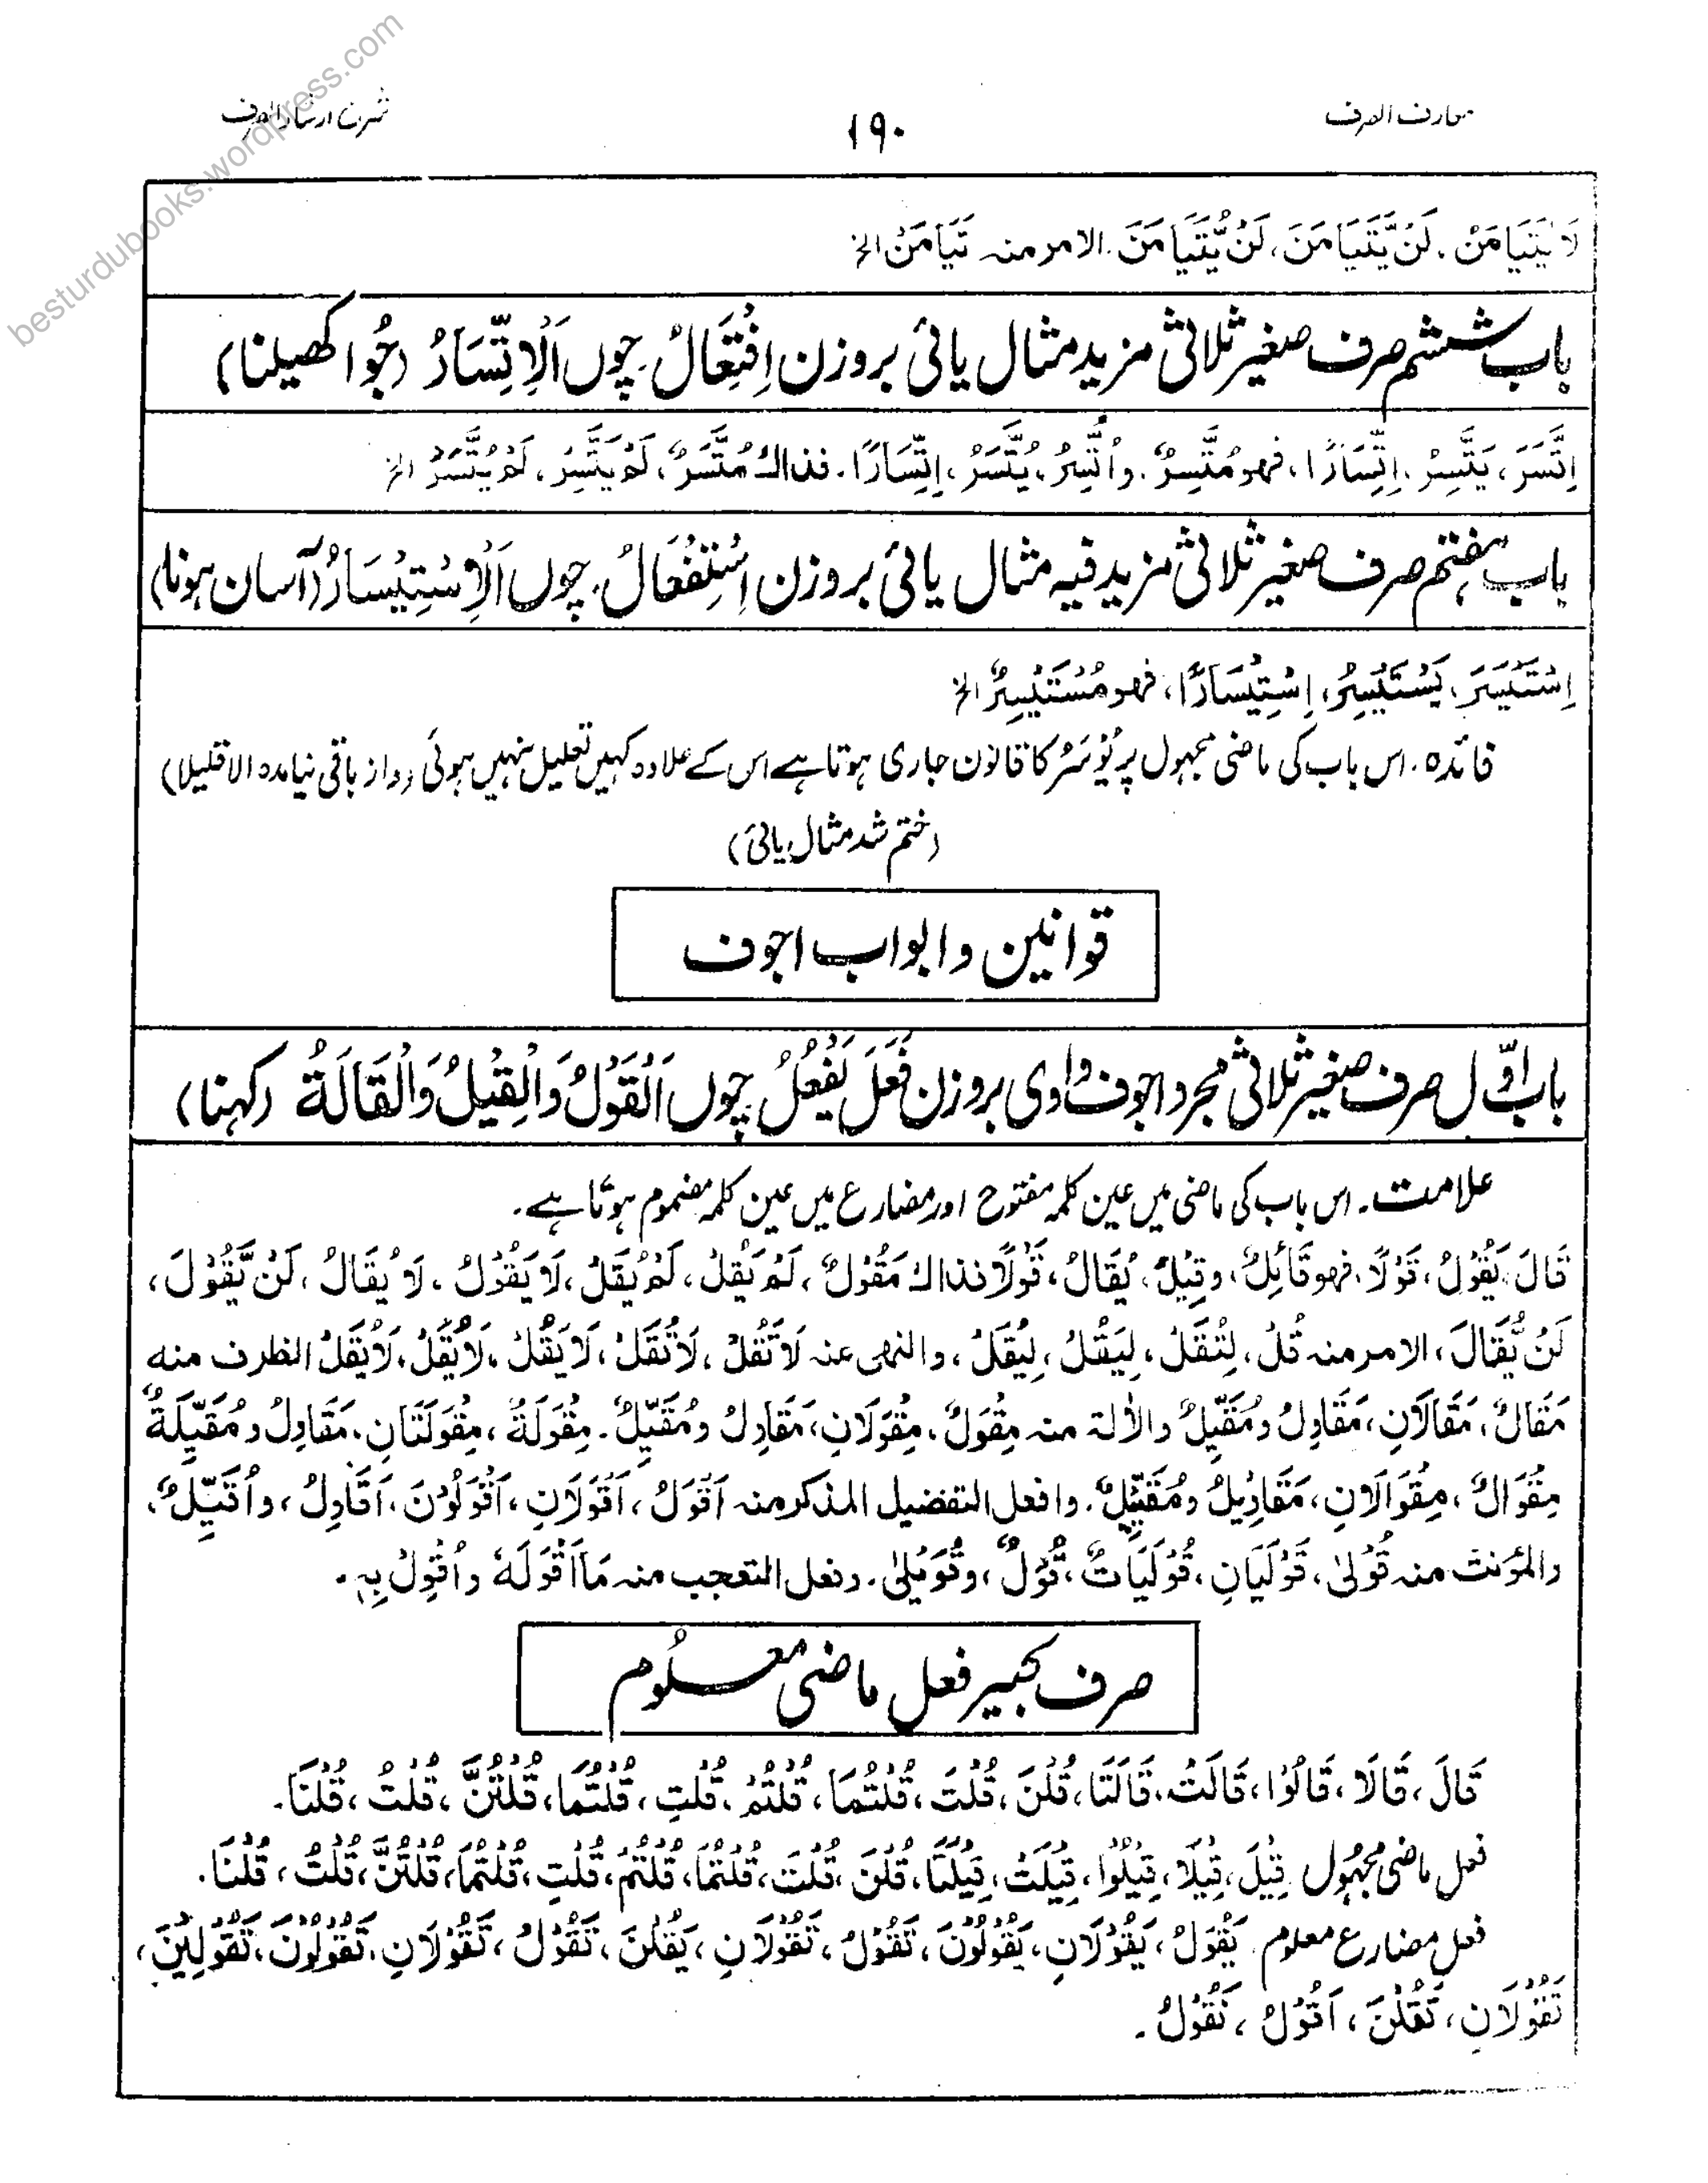 معارف الصرف
۱۹۰
شرح ارشاد الصرف
besturdubooks.wordpress.com
لَا يُتَيَامَنْ. لَنْ يَّتَيَامَنَ، لَنْ يُّتَيَامَنَ. الامر منہ تَيَامَنْ الخ
باب ششم صرف صغیر ثلاثی مزید مثال یائی بروزن اِفْتِعَالٌ. چوں اَلْاِتِّسَارُ (جُوا کھیلنا)
اِتَّسَرَ، يَتَّسِرُ، اِتِّسَارًا، فهو مُتَّسِرٌ. واُتُّسِرَ، يُتَّسَرُ، اِتِّسَارًا. فذاك مُتَّسَرٌ، لَمْ يَتَّسِرْ، لَمْ يُتَّسَرْ الخ
باب ہفتم صرف صغیر ثلاثی مزید فیہ مثال یائی بروزن اِسْتِفْعَالٌ. چوں اَلْاِسْتِيْسَارُ (آسان ہونا)
اِسْتَيْسَرَ، يَسْتَيْسِرُ، اِسْتِيْسَارًا، فهو مُسْتَيْسِرٌ الخ
فائدہ. اس باب کی ماضی مجہول پر يُوْسَرُ کا قانون جاری ہوتا ہے اس کے علاوہ کہیں تعلیل نہیں ہوئی (واز باقی نیامدہ الا قلیلا)
(ختم شد مثال یائی)
قوانین و ابواب اجوف
باب اوّل صرف صغیر ثلاثی مجرد اجوف واوی بروزن فَعَلَ يَفْعُلُ چوں اَلْقَوْلُ وَالْقِيْلُ وَالْقَالَةُ (کہنا)
علامت۔ اس باب کی ماضی میں عین کلمہ مفتوح اور مضارع میں عین کلمہ مضموم ہوتا ہے۔
قَالَ، يَقُوْلُ، قَوْلًا، فهو قَائِلٌ، وقِيْلَ، يُقَالُ، قَوْلًا فذاك مَقُوْلٌ، لَمْ يَقُلْ، لَمْ يُقَلْ، لَا يَقُوْلُ، لَا يُقَالُ، لَنْ يَّقُوْلَ،
لَنْ يُّقَالَ، الامر منہ قُلْ، لِتُقَلْ، لِيَقُلْ، لِيُقَلْ، والنهي عنہ لَا تَقُلْ، لَا تُقَلْ، لَا يَقُلْ، لَا يُقَلْ، لَا يُقَلْ الظرف منہ
مَقَالٌ، مَقَالَانِ، مَقَاوِلُ ومُقَيِّلٌ والآلة منہ مِقْوَلٌ، مِقْوَلَانِ، مَقَاوِلُ ومُقَيِّلٌ۔ مِقْوَلَةٌ، مِقْوَلَتَانِ، مَقَاوِلُ ومُقَيِّلَةٌ
مِقْوَالٌ، مِقْوَالَانِ، مَقَاوِيْلُ ومُقَيِّيْلٌ۔ وافعل التفضيل المذكر منہ اَقْوَلُ، اَقْوَلَانِ، اَقْوَلُوْنَ، اَقَاوِلُ، واُقَيِّلٌ،
والمؤنث منہ قُوْلٰى، قُوْلَيَانِ، قُوْلَيَاتٌ، قُوَلٌ، وقُوَيْلٰى۔ وفعل التعجب منہ مَا اَقْوَلَهٗ واَقْوِلْ بِهٖ۔
صرف کبیر فعل ماضی معلُوم
قَالَ، قَالَا، قَالُوْا، قَالَتْ، قَالَتَا، قُلْنَ، قُلْتَ، قُلْتُمَا، قُلْتُمْ، قُلْتِ، قُلْتُمَا، قُلْتُنَّ، قُلْتُ، قُلْنَا۔
فعل ماضی مجہول قِيْلَ، قِيْلَا، قِيْلُوْا، قِيْلَتْ، قِيْلَتَا، قُلْنَ، قُلْتَ، قُلْتُمَا، قُلْتُمْ، قُلْتِ، قُلْتُمَا، قُلْتُنَّ، قُلْتُ، قُلْنَا.
فعل مضارع معلوم يَقُوْلُ، يَقُوْلَانِ، يَقُوْلُوْنَ، تَقُوْلُ، تَقُوْلَانِ، يَقُلْنَ، تَقُوْلُ، تَقُوْلَانِ، تَقُوْلُوْنَ، تَقُوْلِيْنَ،
تَقُوْلَانِ، تَقُلْنَ، اَقُوْلُ، نَقُوْلُ۔